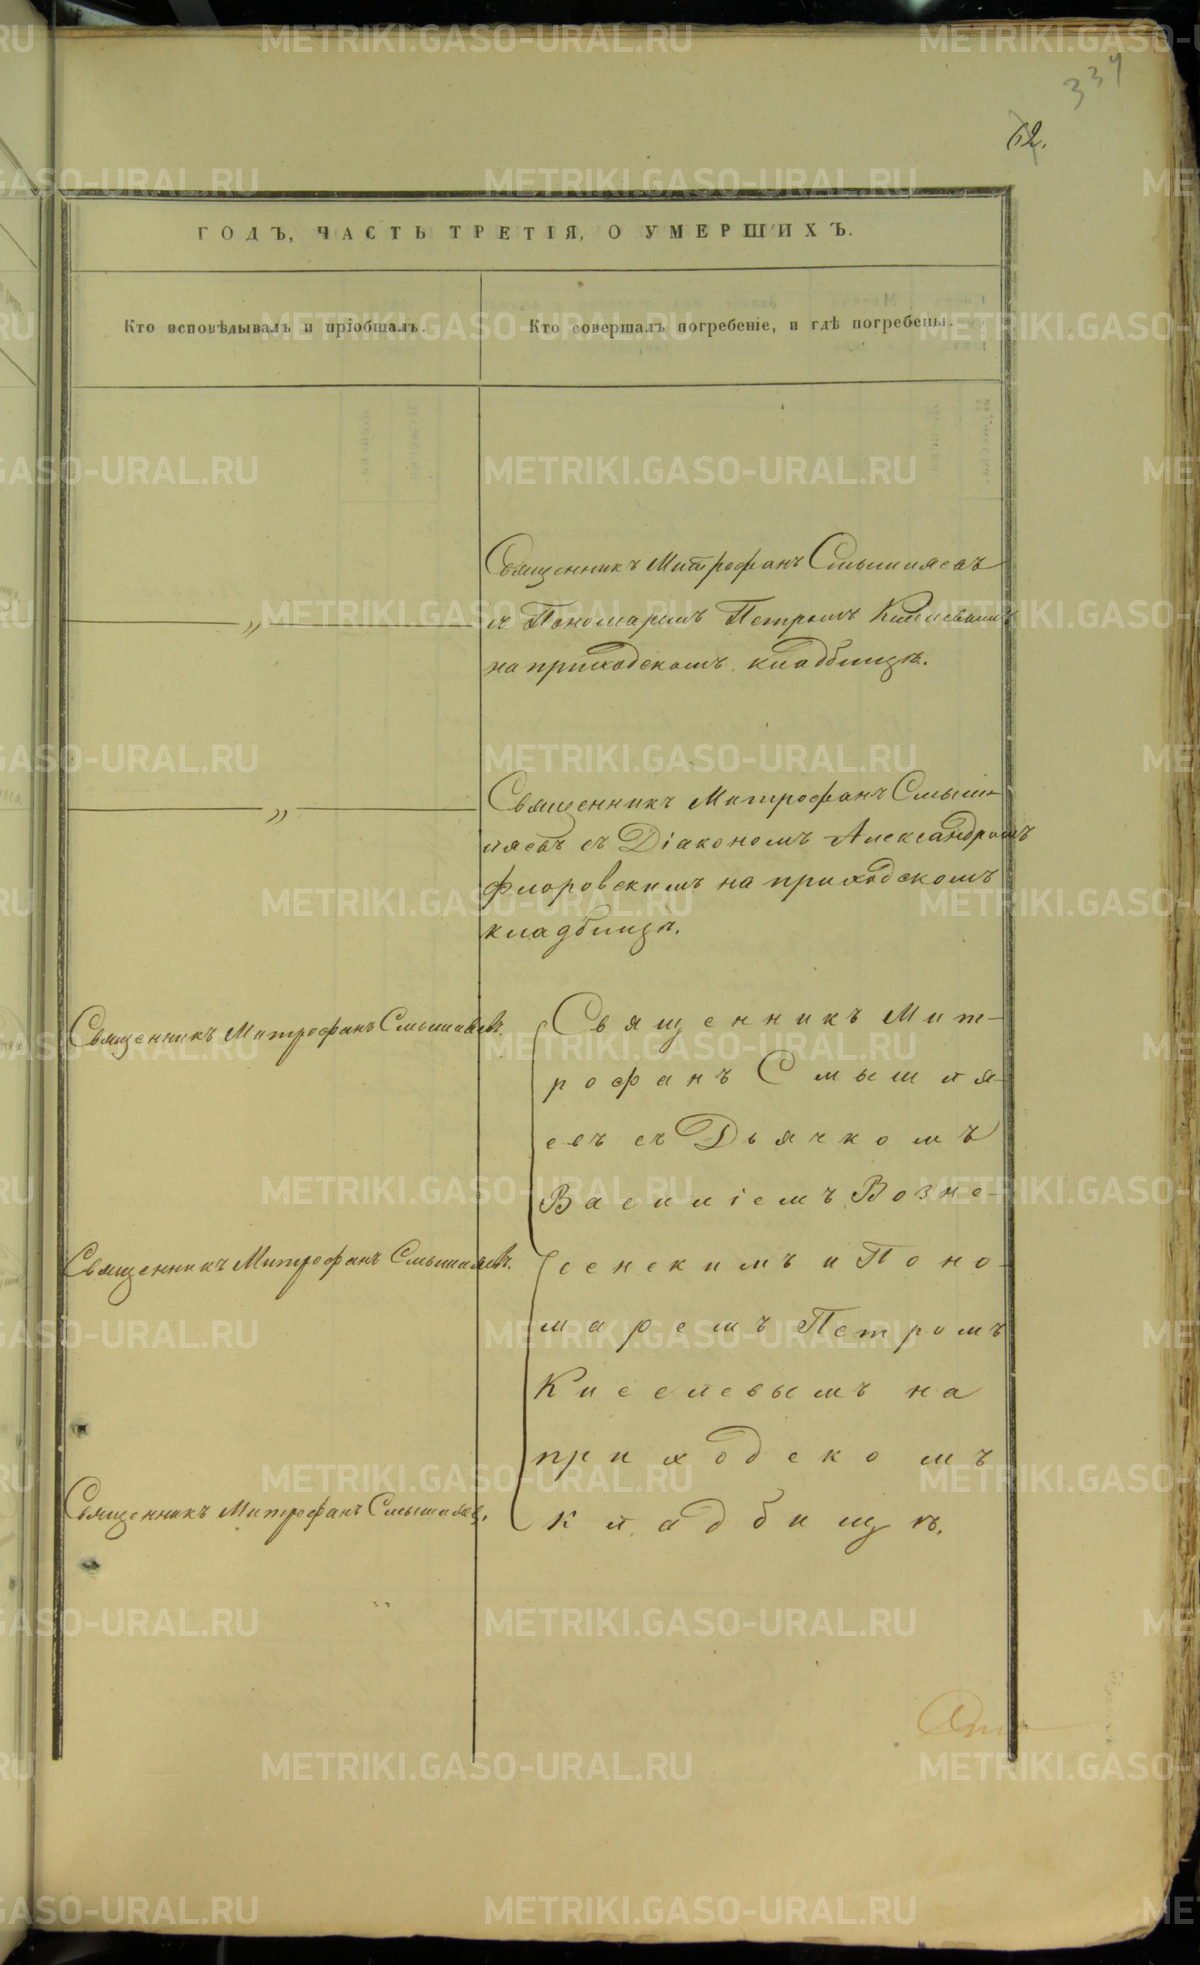 334
62.
ГОДЪ, ЧАСТЬ ТРЕТІЯ, О УМЕРШИХЪ.
Кто исповѣдывалъ и пріобщалъ.
Кто совершалъ погребеніе, и гдѣ погребены.
Священникъ Митрофанъ Смышляевъ
съ Пономаремъ Петромъ Киселевымъ
на приходскомъ кладбищѣ.
„
Священникъ Митрофанъ Смыш-
ляевъ съ Діакономъ Александромъ
Флоровскимъ на приходскомъ
кладбищѣ.
„
Священникъ Митрофанъ Смышляевъ.
Священникъ Мит-
рофанъ Смышля-
евъ съ Дьячкомъ
Василіемъ Возне-
сенскимъ и Поно-
маремъ Петромъ
Киселевымъ на
приходскомъ
кладбищѣ.
Священникъ Митрофанъ Смышляевъ.
Священникъ Митрофанъ Смышляевъ.
METRIKI.GASO-URAL.RU